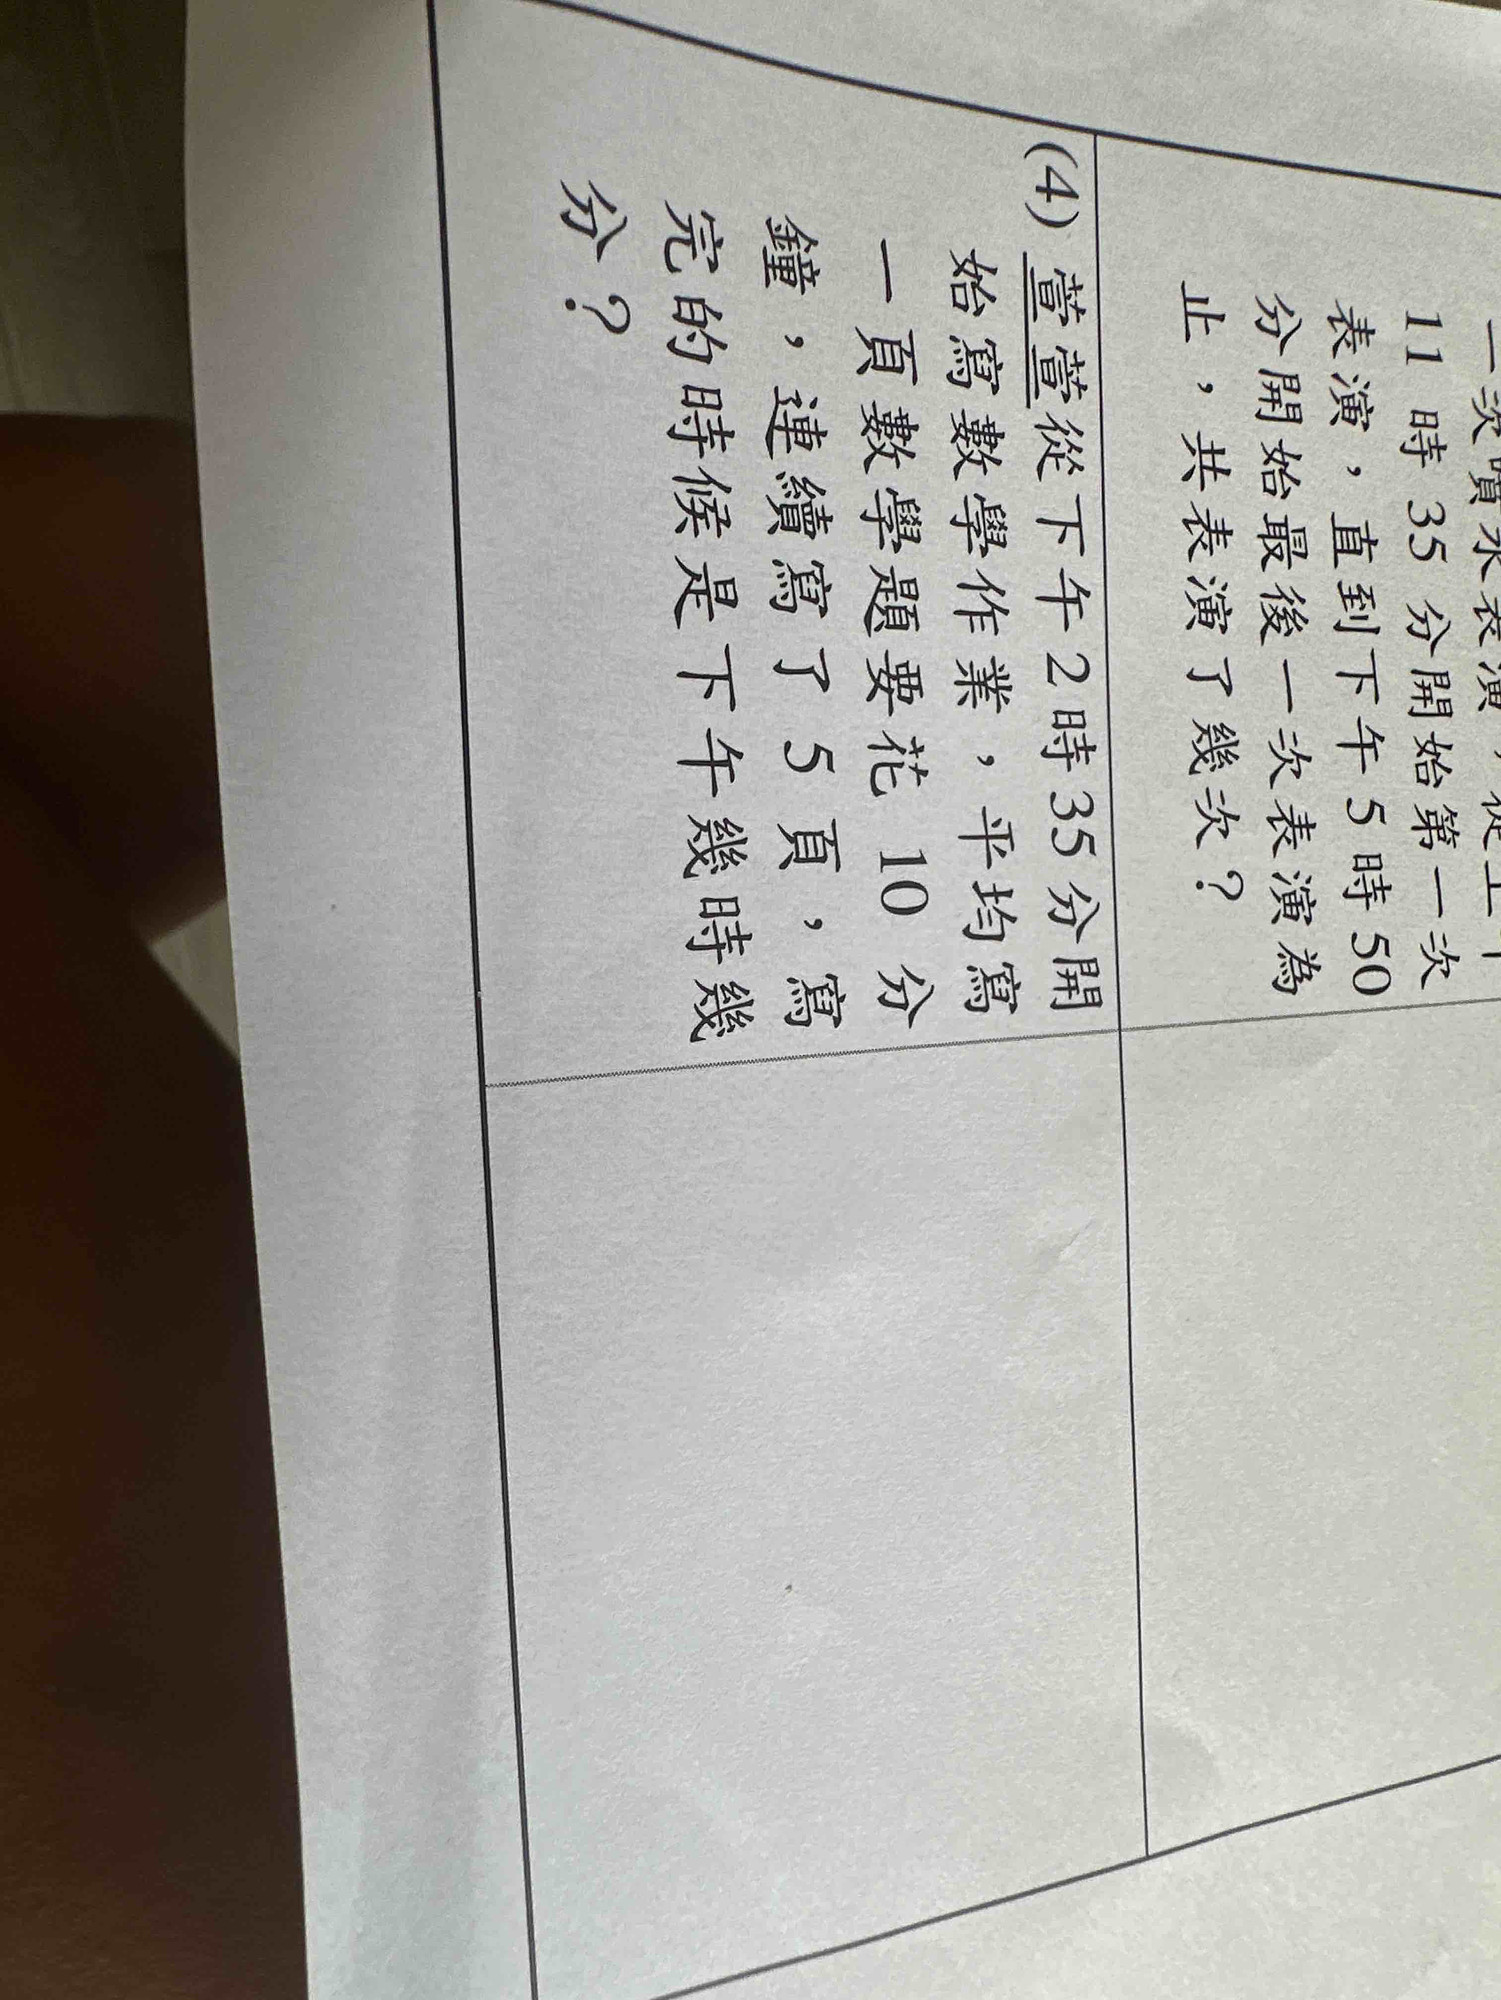 一次噴水表演，從上午
11 時 35 分開始第一次
表演，直到下午5時50
分開始最後一次表演為
止，共表演了幾次？
(4) 萱萱從下午2時35分開
始寫數學作業，平均寫
一頁數學題要花 10 分
鐘，連續寫了 5 頁，寫
完的時候是下午幾時幾
分？